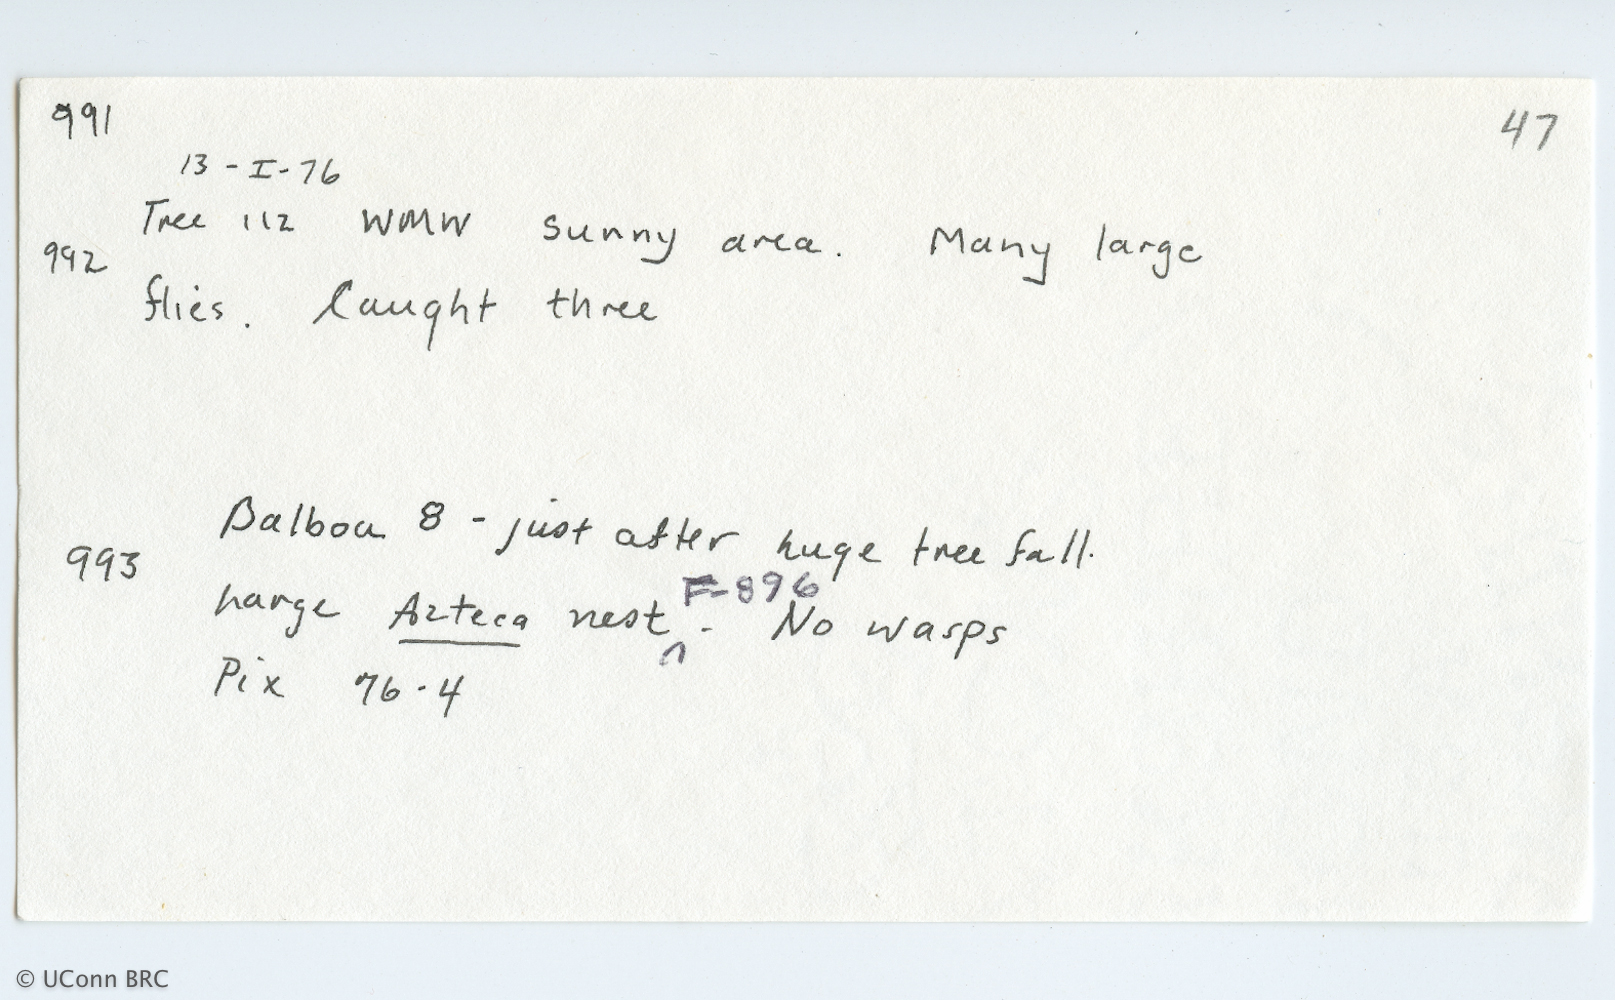 991
47
13-I-76
Tree 112 WMW sunny area. Many large
992
flies. Caught three
Balboa 8 - just after huge tree fall.
993
F-896
Large Azteca nest ^. No wasps
Pix 76-4
© UConn BRC